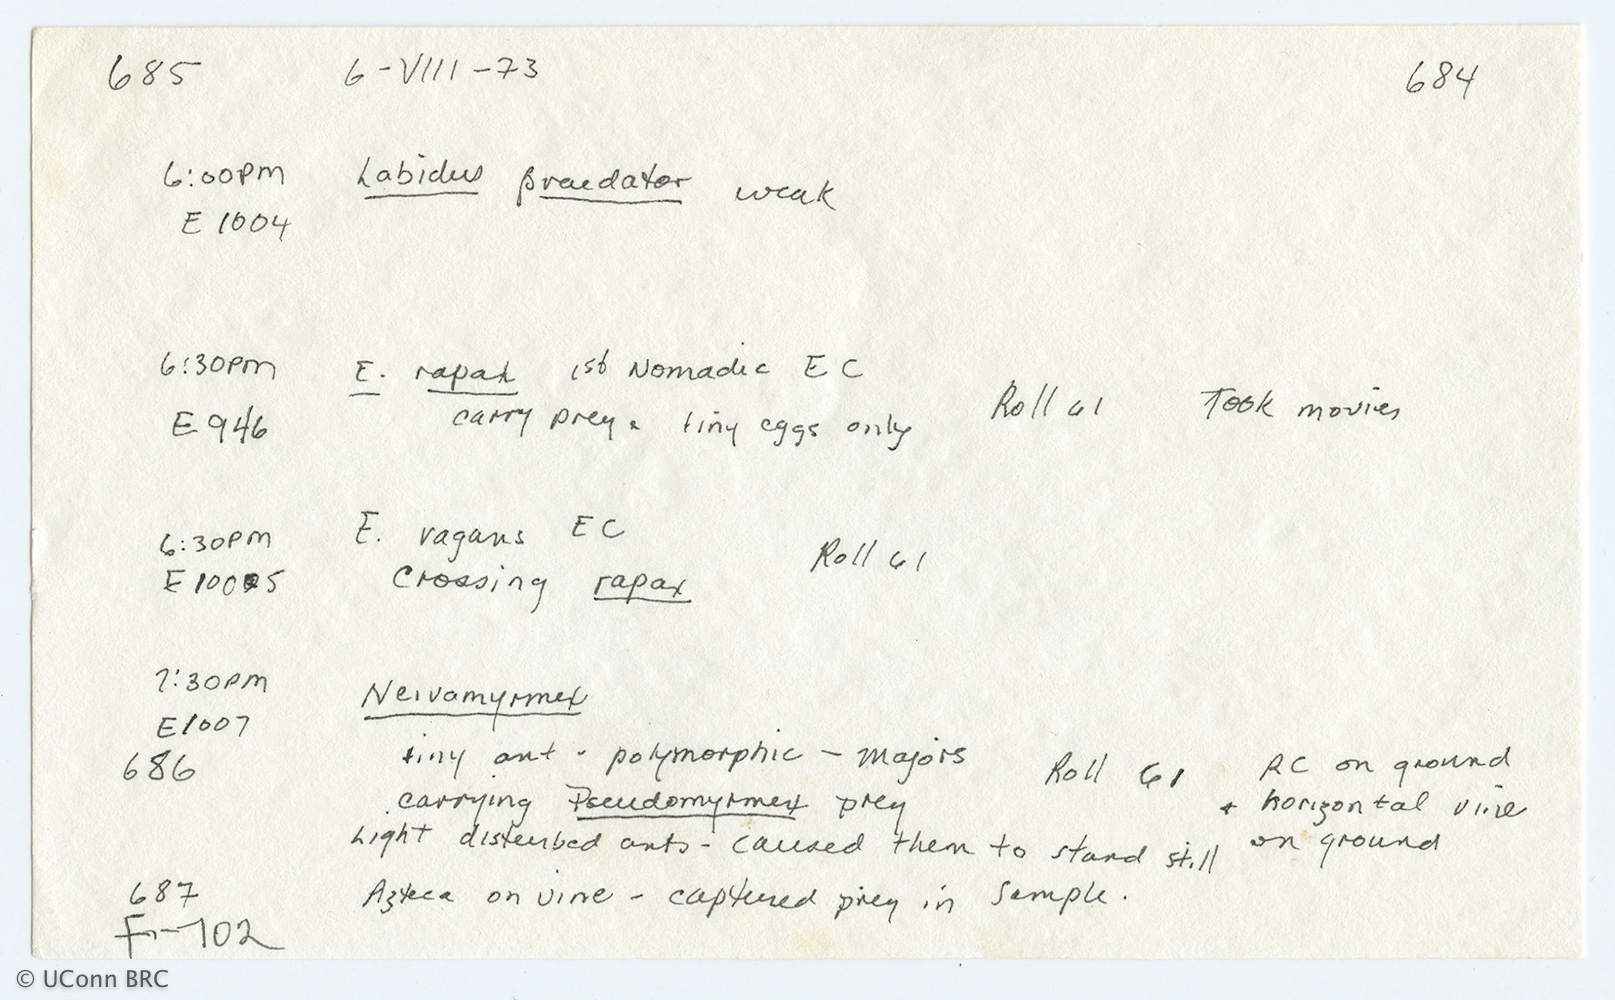 685 6-VIII-73 684
6:00PM Labidus praedator weak
E 1004
6:30PM E. rapax 1st Nomadic EC
E946 carry prey & tiny eggs only Roll 61 Took movies
6:30PM E. vagans EC
E1005 Crossing rapax Roll 61
7:30PM Neivamyrmex
E1007
686 tiny ant - polymorphic - Majors Roll 61 RC on ground
carrying Pseudomyrmex prey + horizontal vine
Light disturbed ants - caused them to stand still on ground
687 Azteca on vine - captured prey in Sample.
F-702
© UConn BRC